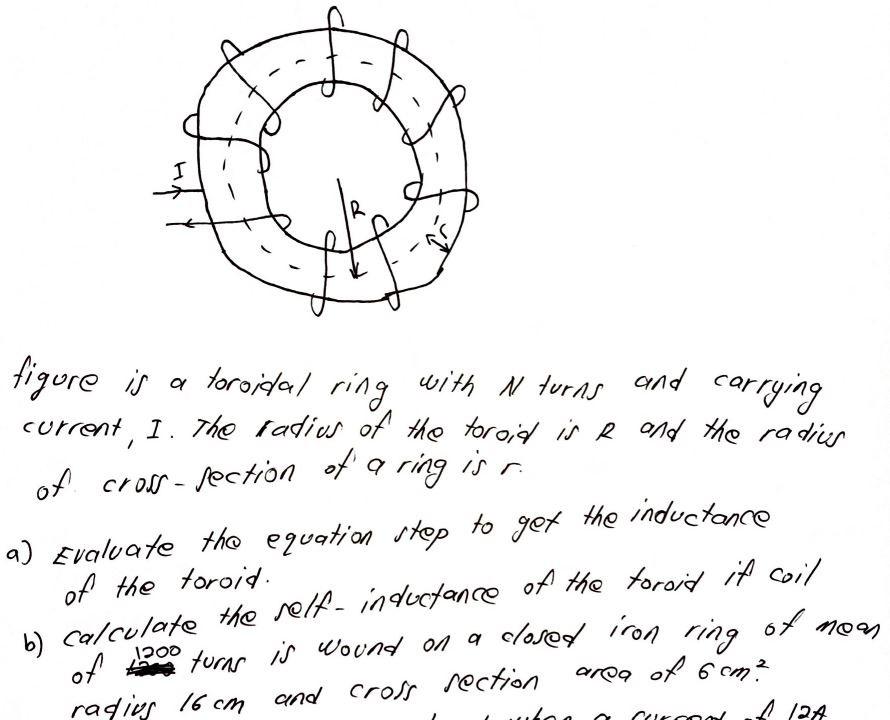 I
R
r
figure is a toroidal ring with N turns and carrying
current, I. The radius of the toroid is R and the radius
of cross-section of a ring is r.
a) Evaluate the equation step to get the inductance
of the toroid.
b) Calculate the self-inductance of the toroid if coil
of 1200 turns is wound on a closed iron ring of mean
radius 16 cm and cross section area of 6 cm².
when a current of 12A